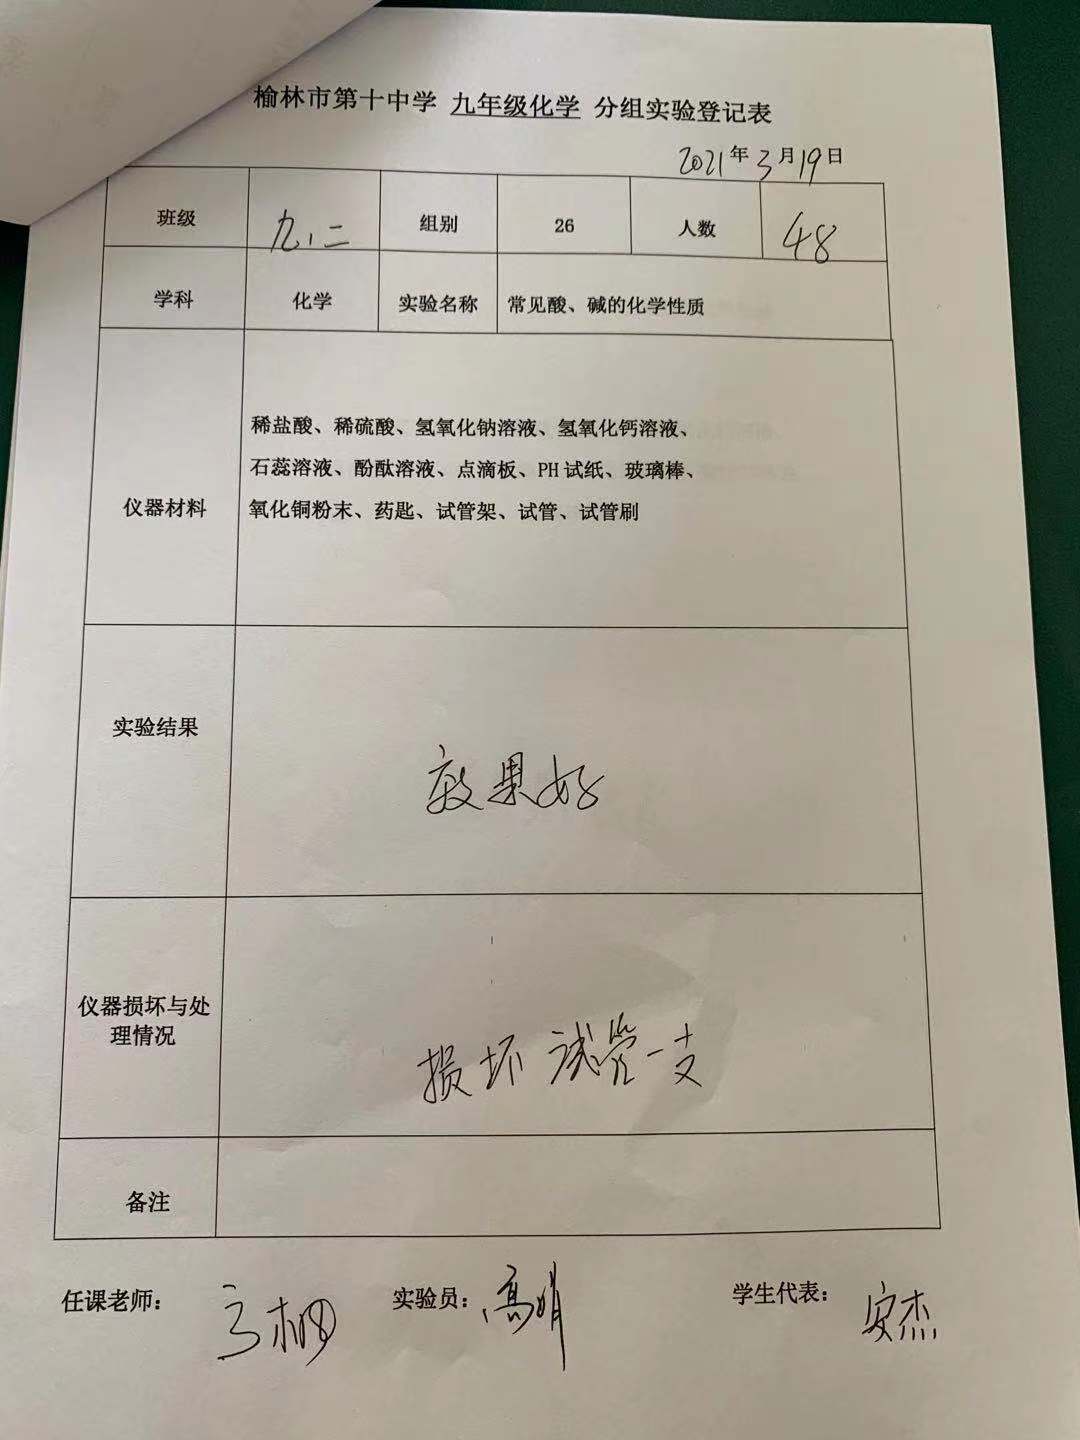 榆林市第十中学 九年级化学 分组实验登记表
2021年3月19日
班级 九.二 组别 26 人数 48
学科 化学 实验名称 常见酸、碱的化学性质
仪器材料
稀盐酸、稀硫酸、氢氧化钠溶液、氢氧化钙溶液、
石蕊溶液、酚酞溶液、点滴板、PH试纸、玻璃棒、
氧化铜粉末、药匙、试管架、试管、试管刷
实验结果
效果好
仪器损坏与处
理情况
损坏 试管一支
备注
任课老师： 实验员：高 学生代表：安杰